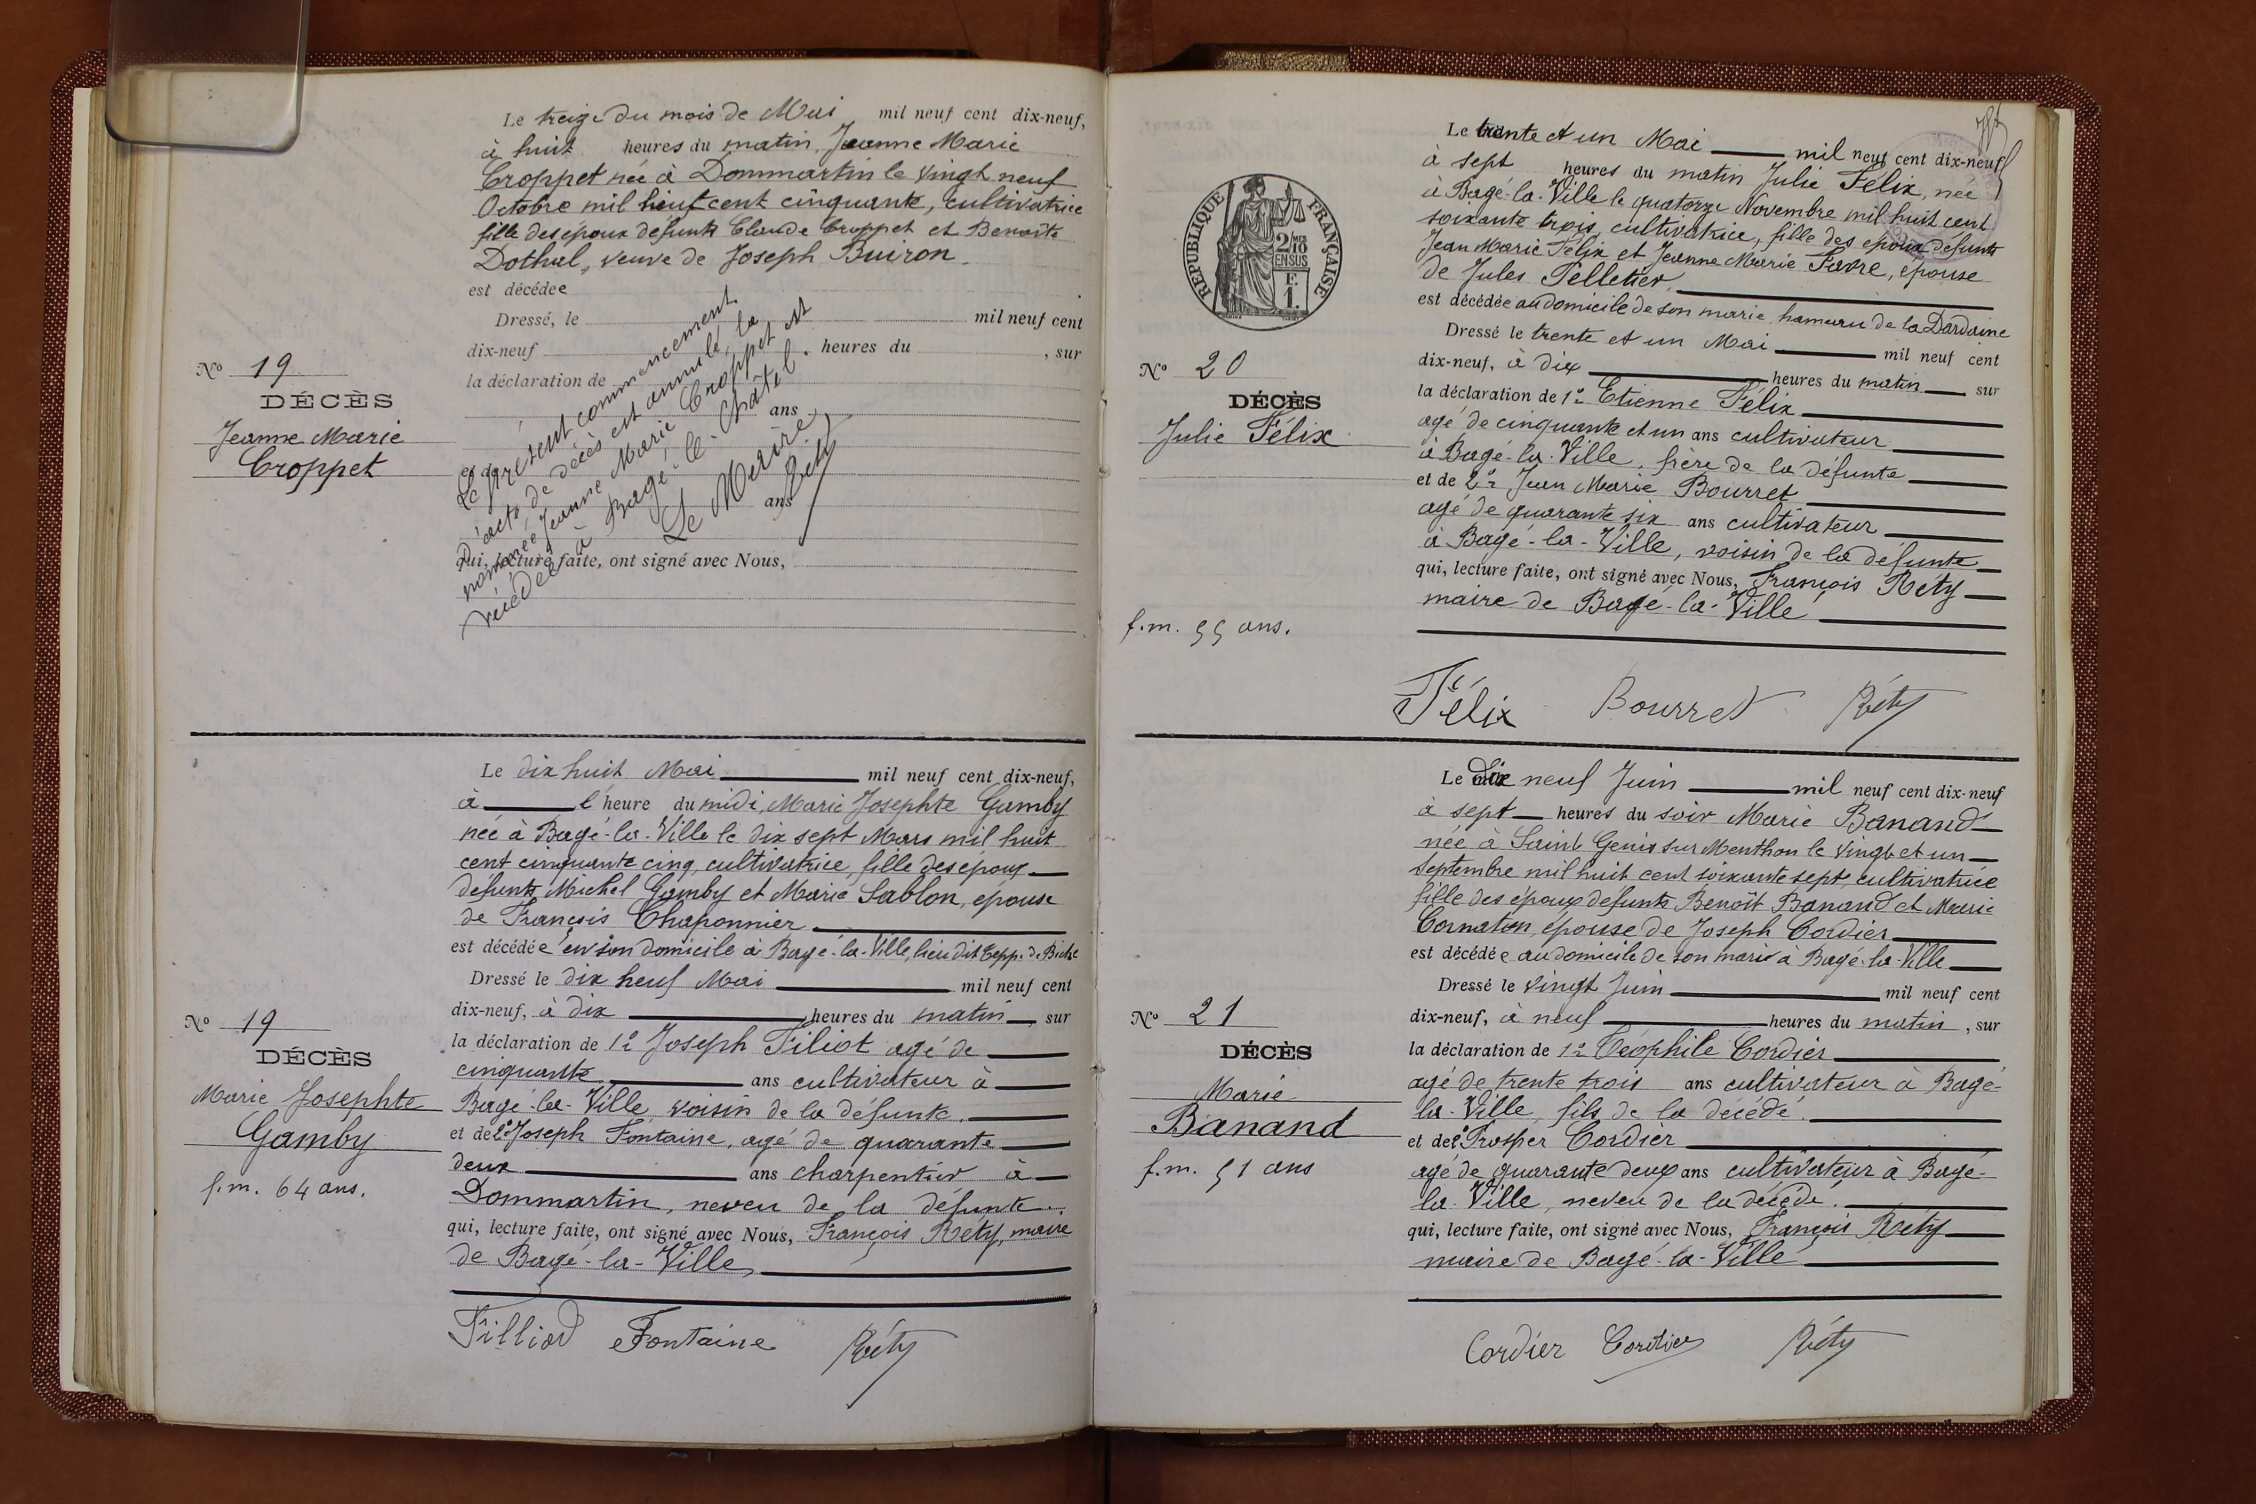 Le treize du mois de Mai mil neuf cent dix-neuf,
à huit heures du matin, Jeanne Marie
Croppet née à Dommartin le vingt neuf
Octobre mil huit cent cinquante, cultivatrice
fille des époux défunts Claude Croppet et Benoîte
Dothal, veuve de Joseph Buiron
est décédée
Dressé, le mil neuf cent
dix-neuf heures du , sur
la déclaration de
ans
et de
ans
qui, lecture faite, ont signé avec Nous,
Le présent commencement
d'acte de décès est annulé, la
nommée Jeanne Marie Croppet est
décédée à Bagé-le-Châtel.
Le Maire,
Réty
No 19
DÉCÈS
Jeanne Marie
Croppet
Le dix huit Mai mil neuf cent dix-neuf,
à l'heure du midi, Marie Josephte Gamby
née à Bagé-la-Ville le dix sept Mars mil huit
cent cinquante cinq, cultivatrice, fille des époux
défunts Michel Gamby et Marie Sablon, épouse
de François Chaponnier
est décédée en son domicile à Bagé-la-Ville, lieu dit Tepp. de Biche
Dressé le dix neuf Mai mil neuf cent
dix-neuf, à dix heures du matin, sur
la déclaration de 1º Joseph Filiot agé de
cinquante ans cultivateur à
Bagé-la-Ville voisin de la défunte.
et de 2º Joseph Fontaine, agé de quarante
deux ans charpentier à
Dommartin, neveu de la défunte.
qui, lecture faite, ont signé avec Nous, François Réty, maire
de Bagé-la-Ville
Filliod Fontaine Réty
No 19
DÉCÈS
Marie Josephte
Gamby
f.m. 64 ans.
RÉPUBLIQUE FRANÇAISE
2/10
MES
EN SUS
F.
1.
Le trente et un Mai mil neuf cent dix-neuf
à sept heures du matin Julie Félix, née
à Bagé-la-Ville le quatorze Novembre mil huit cent
soixante trois, cultivatrice, fille des époux défunts
Jean Marie Félix et Jeanne Marie Favre, épouse
de Jules Pelletier
est décédée au domicile de son marie hameau de la Dardaine
Dressé le trente et un Mai mil neuf cent
dix-neuf, à dix heures du matin sur
la déclaration de 1º Etienne Félix
agé de cinquante et un ans cultivateur
à Bagé-la-Ville, frère de la défunte
et de 2º Jean Marie Bourret
agé de quarante six ans cultivateur
à Bagé-la-Ville, voisin de la défunte
qui, lecture faite, ont signé avec Nous, François Réty
maire de Bagé-la-Ville
Félix Bourret Réty
No 20
DÉCÈS
Julie Félix
f.m. 55 ans.
Le Dix neuf Juin mil neuf cent dix-neuf
à sept heures du soir Marie Banand
née à Saint Genis sur Menthon le vingt et un
septembre mil huit cent soixante sept, cultivatrice
fille des époux défunts Benoît Banand et Marie
Cornaton, épouse de Joseph Cordier
est décédée au domicile de son marie à Bagé-la-Ville
Dressé le vingt Juin mil neuf cent
dix-neuf, à neuf heures du matin, sur
la déclaration de 1º Téophile Cordier
agé de trente trois ans cultivateur à Bagé-
la-Ville, fils de la décédé.
et de 2º Prosper Cordier
agé de quarante deux ans cultivateur à Bagé-
la-Ville, neveu de la décédé.
qui, lecture faite, ont signé avec Nous, François Réty
maire de Bagé-la-Ville
Cordier Cordier Réty
No 21
DÉCÈS
Marie
Banand
f.m. 51 ans